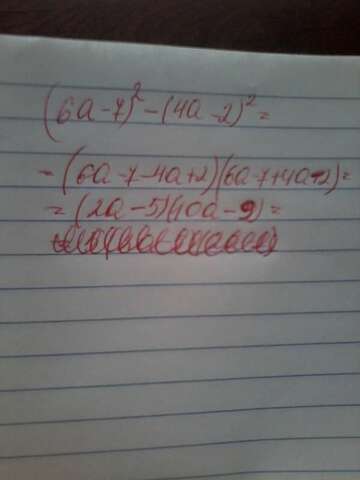 (6a-7)²-(4a-2)²=
=(6a-7-4a+2)(6a-7+4a-2)=
=(2a-5)(10a-9)=